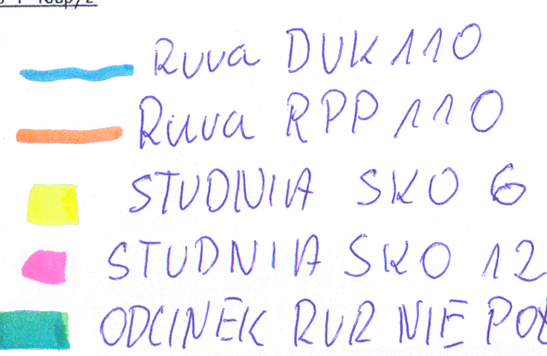 Rura DVK 110
Rura RPP 110
STUDNIA SKO 6
STUDNIA SKO 12
ODCINEK RUR NIE